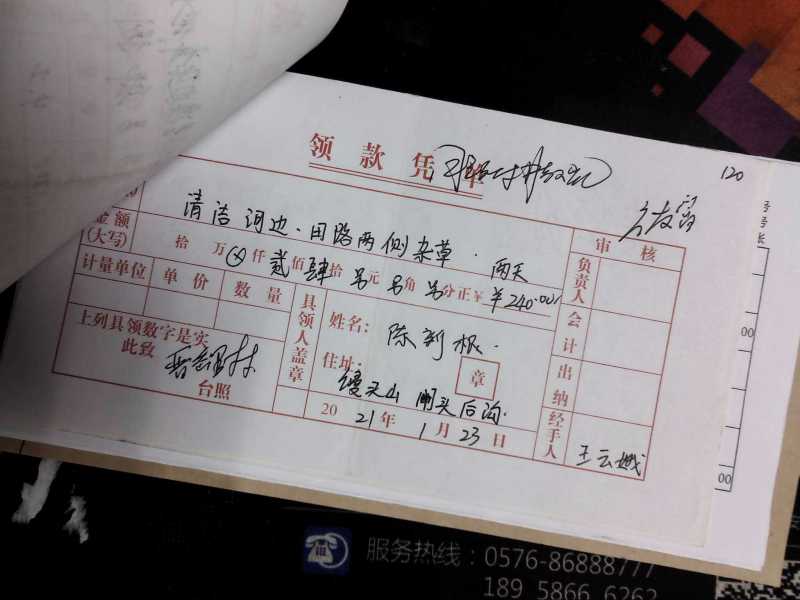 领款凭单
120
清洁河边·田路两侧杂草·两天
金额
(大写)
拾万⊗仟贰佰肆拾另元另角另分正¥ ¥240.00
审核
负责人
会计
出纳
经手人
王云娥
计量单位 单价 数量
上列具领数字是实
此致
台照
具领人盖章
姓名: 陈新根·
住址:
馒头山 闸头后沟·
章
2021年1月23日
号
号
张
00
00
服务热线:0576-86888777
18958666262